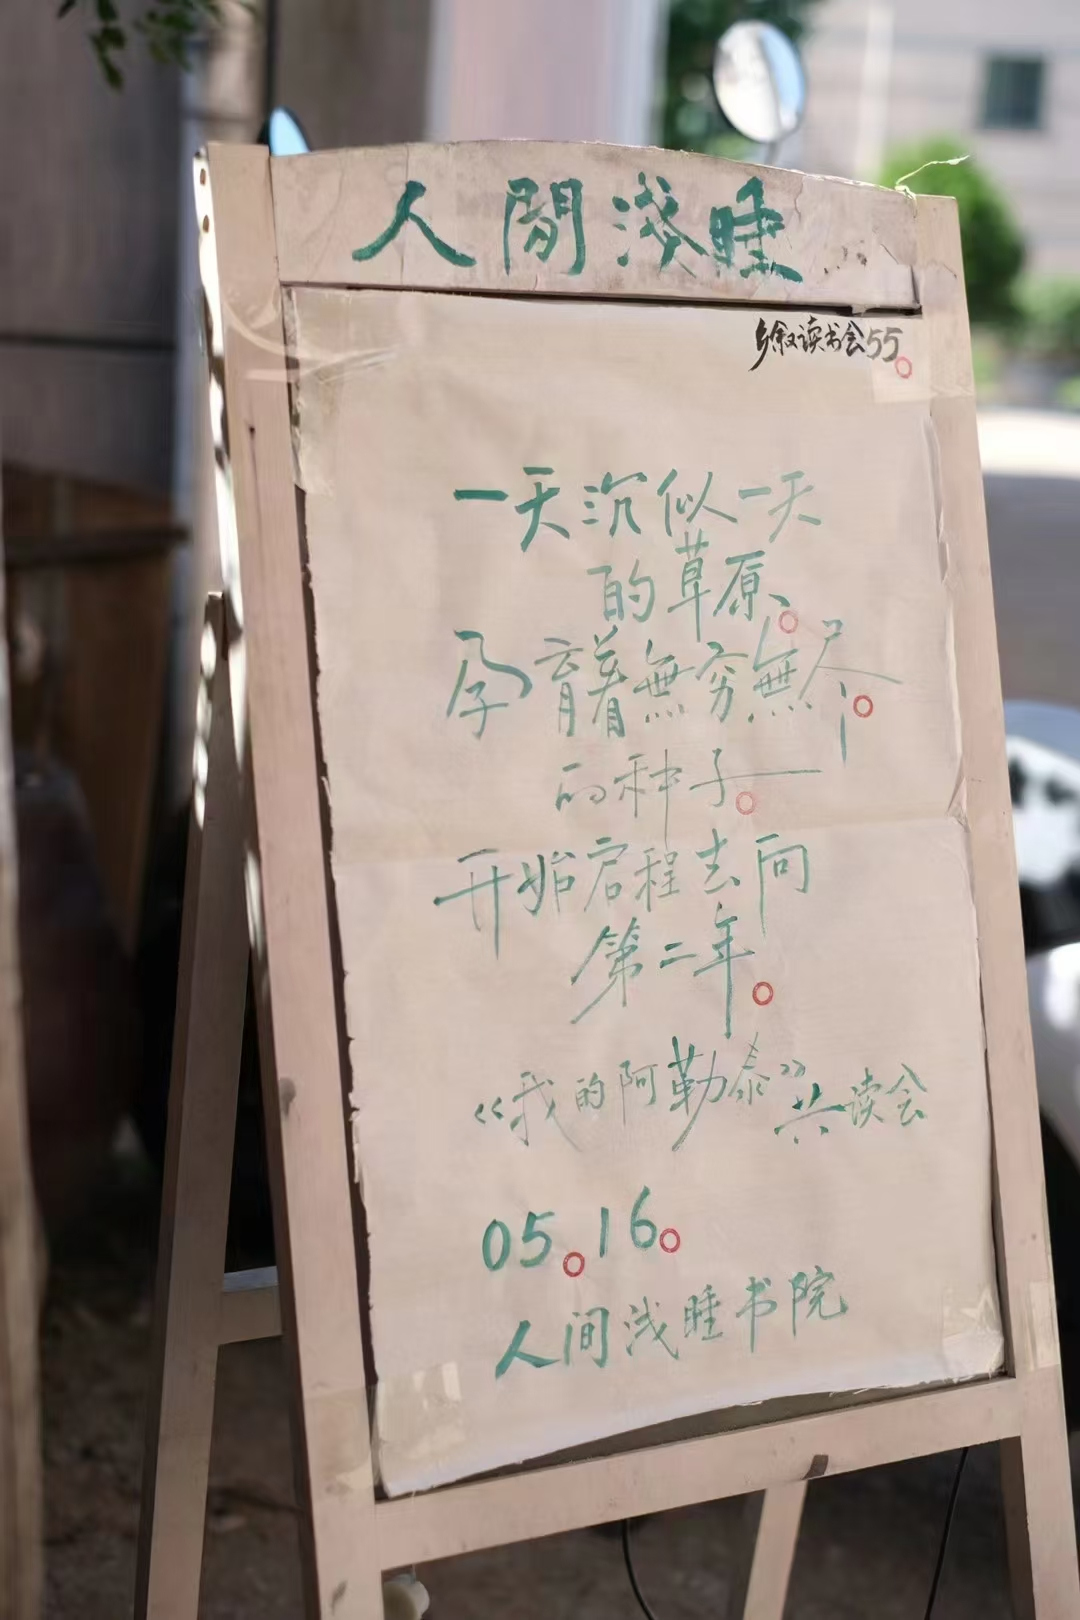 人間淺睡
乡叙读书会55。
一天沉似一天
的草原、。
孕育着無穷無尽。
的种子。
开始启程去向
第二年。
《我的阿勒泰》共读会
05。16。
人间浅睡书院